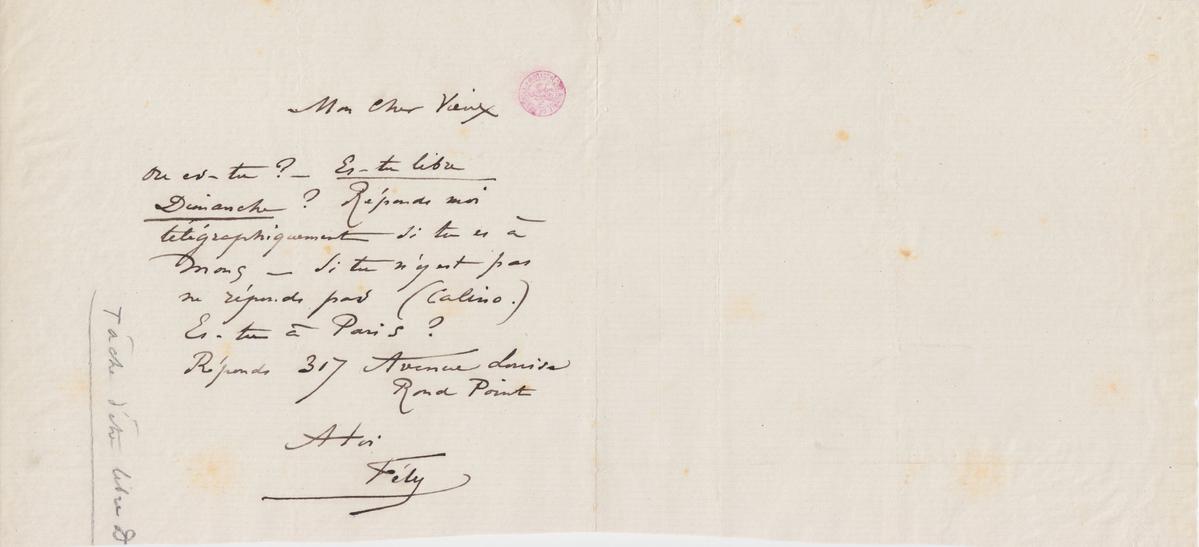 Mon Cher Vieux
Ou es-tu ? — Es-tu libre
Dimanche ? Réponds moi
télégraphiquement si tu es à
Mons — si tu n'y est pas
ne réponds pas (Calino.)
Es-tu à Paris ?
Réponds 317 Avenue Louise
Rond Point
A toi
Fély
Tâche d'être libre D